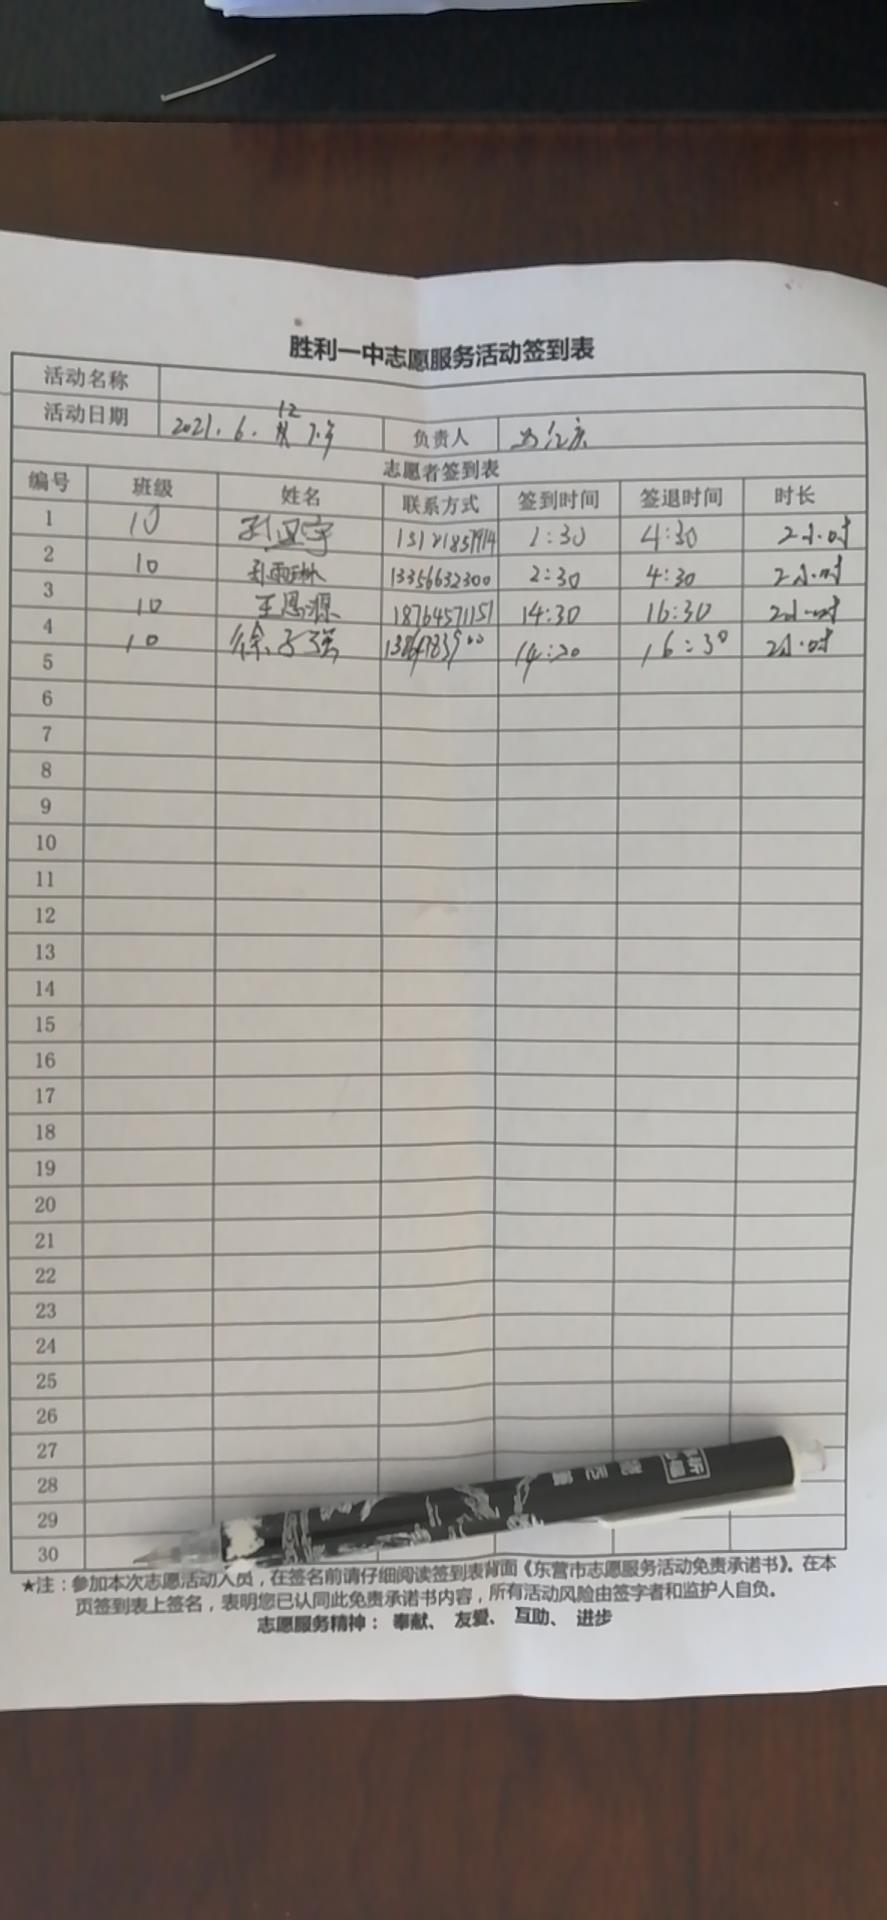 胜利一中志愿服务活动签到表
活动名称
活动日期 2021.6.12 下午 负责人
志愿者签到表
编号 班级 姓名 联系方式 签到时间 签退时间 时长
1 10 1:30 4:30 2小时
2 10 13356632300 2:30 4:30 2小时
3 10 王恩源 18764571151 14:30 16:30 2小时
4 10 徐子强 16:30 2小时
5
6
7
8
9
10
11
12
13
14
15
16
17
18
19
20
21
22
23
24
25
26
27
28
29
30
★注：参加本次志愿活动人员，在签名前请仔细阅读签到表背面《东营市志愿服务活动免责承诺书》。在本
页签到表上签名，表明您已认同此免责承诺书内容，所有活动风险由签字者和监护人自负。
志愿服务精神： 奉献、 友爱、 互助、 进步